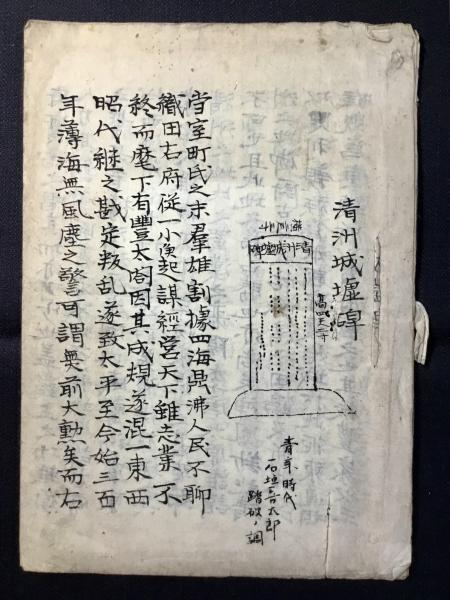 清洲城墟碑
清洲城墟碑
青年時代
踏破ノ調
當室町氏之末羣雄割據四海鼎沸人民不聊
織田右府従一小侯起謀經營天下雖志業不
終而麾下有豐太閤因其成規遂混一東西
昭代継之戡定叛乱遂致太平至今始三百
年薄海無風塵之警可謂無前大勲矣而右